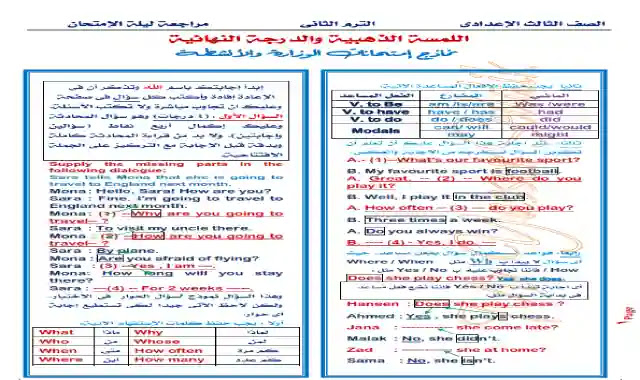 الصف الثالث الإعدادى الترم الثانى مراجعة ليلة الإمتحان
اللمسة الذهبية والدرجة النهائية
نماذج إمتحانات الوزارة والأنشطة
إبدأ إجابتك باسم الله وتذكر أن فى
الإعادة إفادة واكتب كل سؤال فى صفحة
وعليك أن تجاوب مباشرة ولا تكتب الأسئلة.
السؤال الأول (٤ درجات) وهو سؤال المحادثة
وعليك إكمال أربع نقاط (سؤالين
وإجابتين). ولا بد من قراءة المحادثة كاملة
وبدقة قبل الإجابة مع التركيز على الجملة
الإفتتاحية
Supply the missing parts in the
following dialogue:
Sara tells Mona that she is going to
travel to England next month.
Mona: Hello, Sara! How are you?
Sara : Fine. I'm going to travel to
England next month.
Mona: (1) –Why are you going to
travel– ?
Sara : To visit my uncle there.
Mona (2) –How are you going to
travel– ?
Sara : By plane.
Mona : Are you afraid of flying?
Sara : (3) –Yes, I am –.
Mona: How long will you stay
there?
Sara : —(4) – For 2 weeks ——.
وهذا السؤال نموذج لسؤال الحوار فى الاختبار.
ولكن لاحظ الآتى جيدا لكى تستطيع إجابة
أى حوار.
أولا : يجب حفظ كلمات الإستفهام الآتية.
What ماذا Why لماذا
Who من Whose لمن
When متى How often كم مرة
Where اين How many كم عدد
ثانيا : يجب حفظ الأفعال المساعدة الآتية
الفعل المساعد المضارع الماضي
V. to Be am /is/are Was /were
V. to have have / has had
V. to do do / does did
Modals can/ will could/would
may might
A.- (1) —What's our favourite sport?
B. My favourite sport is football.
A. Great. — (2) -- Where do you
play it?
B. Well, I play it in the club
A. How often — (3) — do you play?
B. Three times a week.
A. Do you always win?
B. ---- (4) - Yes, I do.
Does she play chess? Yes, she does.
Hansen : Does she play chess ?
Ahmed : Yes, she plays chess.
Jana : ———— she come late?
Malak : No, she didn't.
Zad : ———— she at home?
Sama : No, she isn't.
Page 1